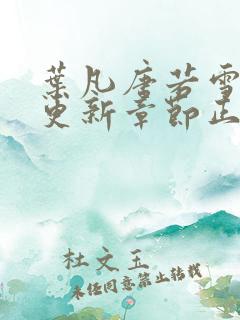 葉凡唐若雪
更新章節正
杜文玉
未经同意禁止转载